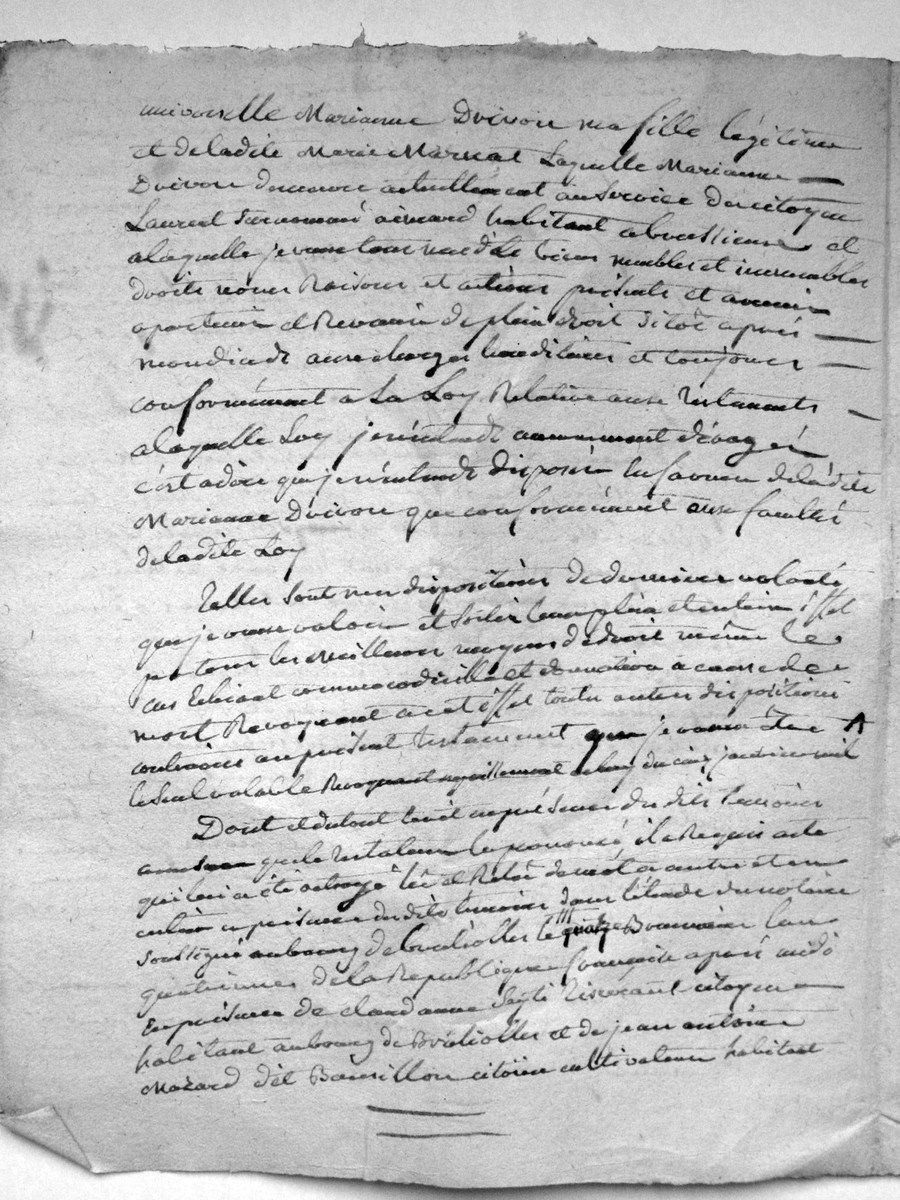 universelle Marianne Doivon ma fille légitime
et de ladite Marie Marnat Laquelle Marianne
Doivon demeure actuellement au Service du citoyen
Laurent aimard habitant a et
a laquelle je veux tous mesdits biens meubles et immeubles
droits noms Raisons et actions présents et avenir
apartenir et Revenir de plein droit Sitôt après
mon décede aux charges héréditaires et toujours
conformément a La Loy Relative aux testaments
a laquelle Loy je n'entends aucunement déroger
c'est adire que je n'entends disposer En faveur de ladite
Marianne Doivon que conformément aux facultés
de ladite Loy
Telles Sont mes dispositions de derniere volonté
que je veux valoir et Sortir leur plein et entier effet
par tous les meilleurs moyens de droit même Le
cas Echéant comme codicille et donation a cause de
mort Revoquant a cet effet toutes autres dispositions
contraires au présent testament que je veux être
le Seul valable Revoquant
Dont et du tout en présence des dits temoins
que le testateur la prononcé, il a Requis acte
qui lui a été octroyé lû et Relû de mot a autre et en
entier en présence desdits temoins dans l'étude du notaire
Soussigné au bourg de le Brumaire l'an
quatrieme de la Republique française après midi
En présence de citoyen
habitant au bourg de et de jean antoine
Mazard del citoien cultivateur habitant